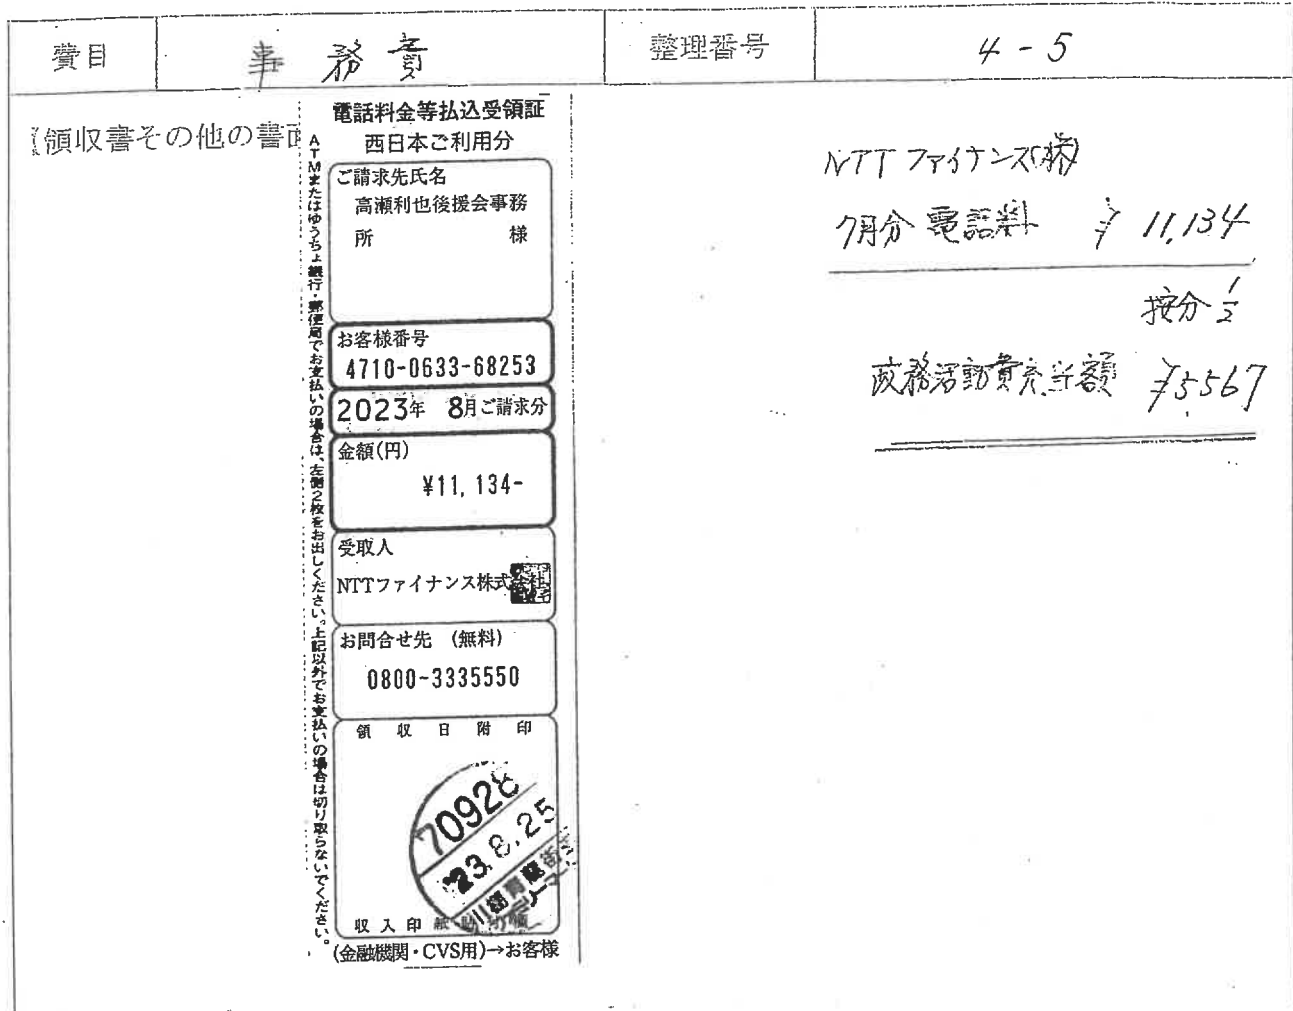 費目 事務費 整理番号 4-5
領収書その他の書面
電話料金等払込受領証
西日本ご利用分
ATMまたはゆうちょ銀行・郵便局でお支払いの場合は、左側2枚をお出しください。上記以外でお支払いの場合は切り取らないでください。
ご請求先氏名
高瀬利也後援会事務
所 様
お客様番号
4710-0633-68253
2023年 8月ご請求分
金額(円)
¥11,134-
受取人
NTTファイナンス株式会社
お問合せ先 (無料)
0800-3335550
領収日附印
70928
23.8.25
収入印紙
(金融機関・CVS用)→お客様
NTTファイナンス(株)
7月分 電話料 ¥11,134
按分 1/2
政務活動費充当額 ¥5,567